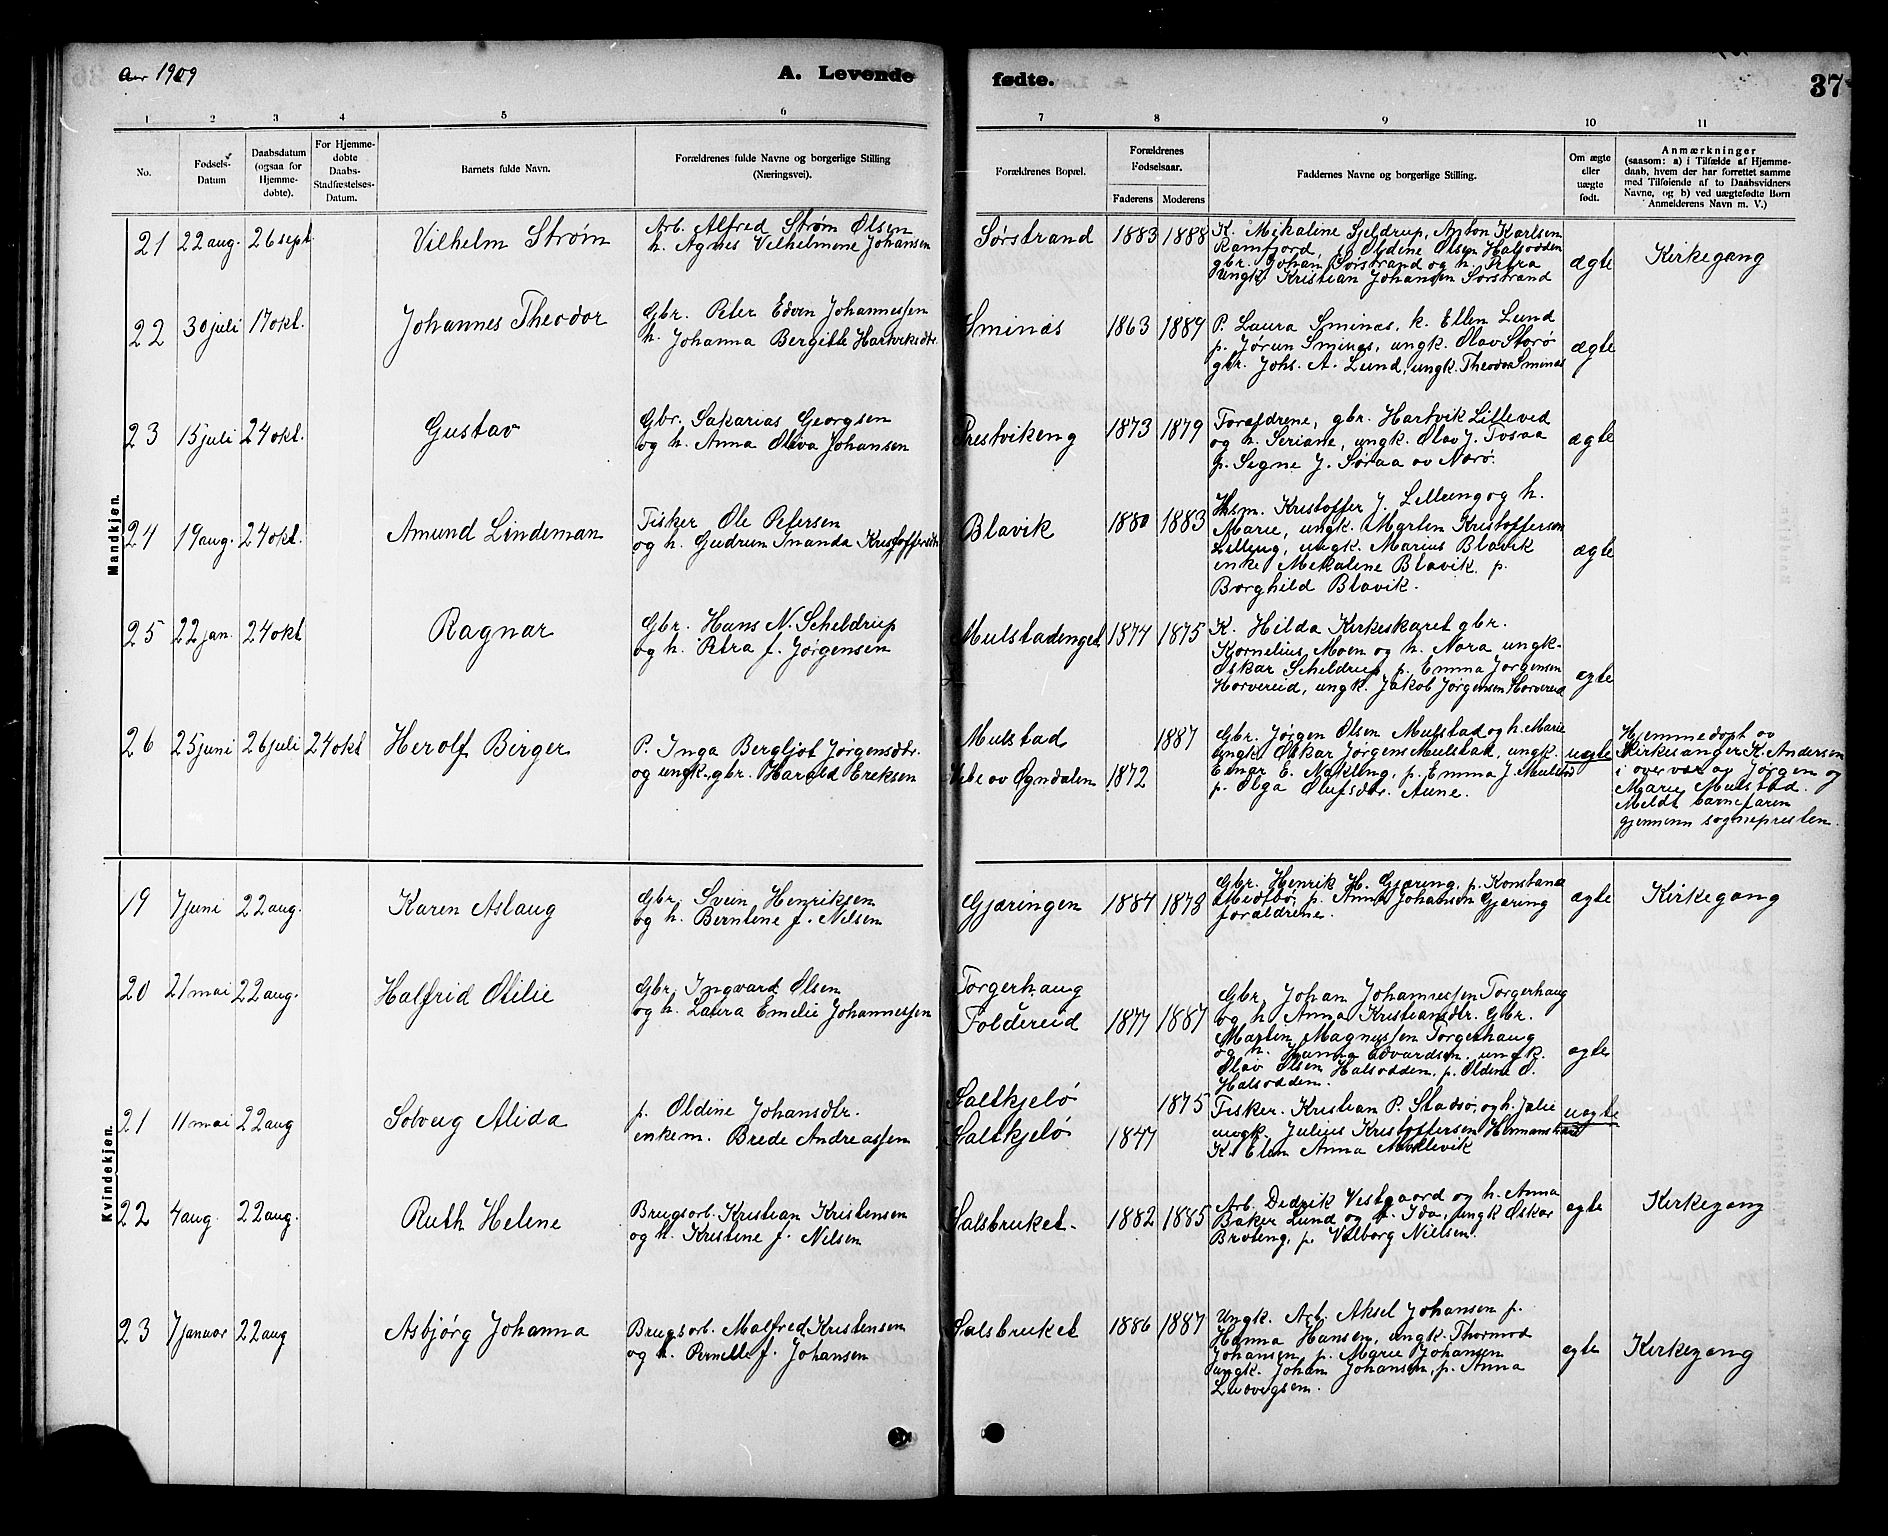 Aar 1909
A. Levende fødte.
37
1 2 3 4 5 6 7 8 9 10 11
No.
Fødsels-Datum
Daabsdatum (ogsaa for Hjemmedøbte).
For Hjemmedøbte Daabs-Stadfæstelses-Datum.
Barnets fulde Navn.
Forældrenes fulde Navne og borgerlige Stilling (Næringsvei).
Forældrenes Bopæl.
Forældrenes Fødselsaar.
Faderens Moderens
Faddernes Navne og borgerlige Stilling.
Om ægte eller uægte født.
Anmærkninger
(saasom: a) i Tilfælde af Hjemmedaab, hvem der har forrettet samme med Tilføiende af to Daabsvidners Navne, og b) ved uægtefødte Børn Anmelderens Navn m. V.)
Mandkjøn.
21 22 aug. 26 sept Vilhelm Strøm
Arb. Alfred Strøm Olsen
h. Agnes Vilhelmine Johansen
Sørstrand 1883 1888
K. Mikaline Sjeldrup, Anton Karlsen
Ramfjord, p. Oldine Olsen Halsodden
gbr. Johan Sørstrand og h. Petra
ungk. Kristian Johansen Sørstrand
ægte Kirkegang
22 30 juli 17 okt. Johannes Theodor
Gbr. Peter Edvin Johannessen
h. Johanna Bergitte Hartviksdtr.
Sminæs 1863 1889
P. Laura Sminæs, k. Ellen Lund
p. Jørun Sminæs, ungk. Olav Storø
gbr. Johs. A. Lund, ungk. Theodor Sminæs
ægte
23 15 juli 24 okt. Gustav
Gbr. Sakarias Georgsen
og h. Anna Oliva Johansen
Prestvikeng 1873 1879
Foraldrene, gbr. Hartvik Lilleved
og h. Seriane, ungk. Olav J.
p. Signe J. Søraa av Nærø.
ægte
24 19 aug. 24 okt. Amund Lindeman
Fisker Ole Petersen
og h. Gudrun Inanda Kristoffersdtr.
Blavik 1880 1883
Hsm. Kristoffer J. Lilleeng og h.
Marie, ungk. Morten Kristoffersen
Lilleng, ungk. Marius Blavik
enke Mekaline Blavik p.
Borghild Blavik.
ægte
25 22 jan. 24 okt Ragnar
Gbr. Hans N. Scheldrup
og h. Petra f. Jørgensen
Mulstadenget 1874 1875
K. Hilda Kirkeskaret gbr.
Kornelius Moen og h. Nora ungk.
Oskar Scheldrup, p. Emma Jørgensen
Horvereid, ungk. Jakob Jørgensen Horvereid
ægte
26 25 juni 26 juli 24 okt Herolf Birger
P. Inga Bergljot Jørgensdtr.
og ungk. gbr. Harald Eriksen
Mulstad 1887
av Øgndalen 1872
Gbr. Jørgen Olsen Mulstad og h. Marie
ungk. Oskar Jørgens Mulstad, ungk.
Einar E. Nøkling, p. Emma J. Mulstad
p. Olga Olufsdtr. Aune.
uægte
Hjemmedøpt av
Kirkesanger K. Andersen
i overvær av Jørgen og
Marie Mulstad.
Meldt barnefaren
gjennem sognepresten.
Kvindekjøn.
19 7 juni 22 aug. Karen Aslaug
Gbr. Svein Henriksen
og h. Berntine f. Nilsen
Gjæringen 1884 1873
Gbr. Henrik H. Gjæring, p. Konstanse
Medtbø, p. Anna Johansen Gjæring
forældrene.
ægte Kirkegang
20 21 mai 22 aug. Halfrid Otilie
Gbr. Ingvard Olsen
og h. Laura Emelie Johannessen
Torgerhaug
Foldereid 1877 1887
Gbr. Johan Johannessen Torgerhaug
og h. Anna Kristiansdtr. Gbr.
Martin Magnussen Torgerhaug
og h. Hanna Edvardsen. ungk.
Olav Olsen Halsodden, p. Oldine O.
Halsodden.
ægte
21 11 mai 22 aug Solveig Alida
p. Oldine Johansdtr.
enkem. Brede Andreassen
Saltkjelø 1875
Saltkjelø 1847
Fisker. Kristian P. Stadsø, og h. Julie
ungk. Julius Kristoffersen
K. Elen Anna Møllevik
uægte
22 4 aug. 22 aug. Ruth Helene
Brugsarb. Kristian Kristensen
og h. Kristine f. Nilsen
Salsbruket. 1882 1885
Arb. Didrik Vestgaard og h. Anna
Baker Lund og f. Ida, ungk Oskar
Bråteng, p. Valborg Nielsen.
ægte Kirkegang
23 7 januar 22 aug Asbjørg Johanna
Brugsarb. Malfred Kristensen
og h. Pernille f. Johansen
Salsbruket 1886 1887
Ungk. Arb. Aksel Johansen p.
Hanna Hansen, ungk. Thormod
Johansen, p. Marie Johansen
ungk. Johan Johansen, p. Anna
Ludvigsen.
ægte Kirkegang